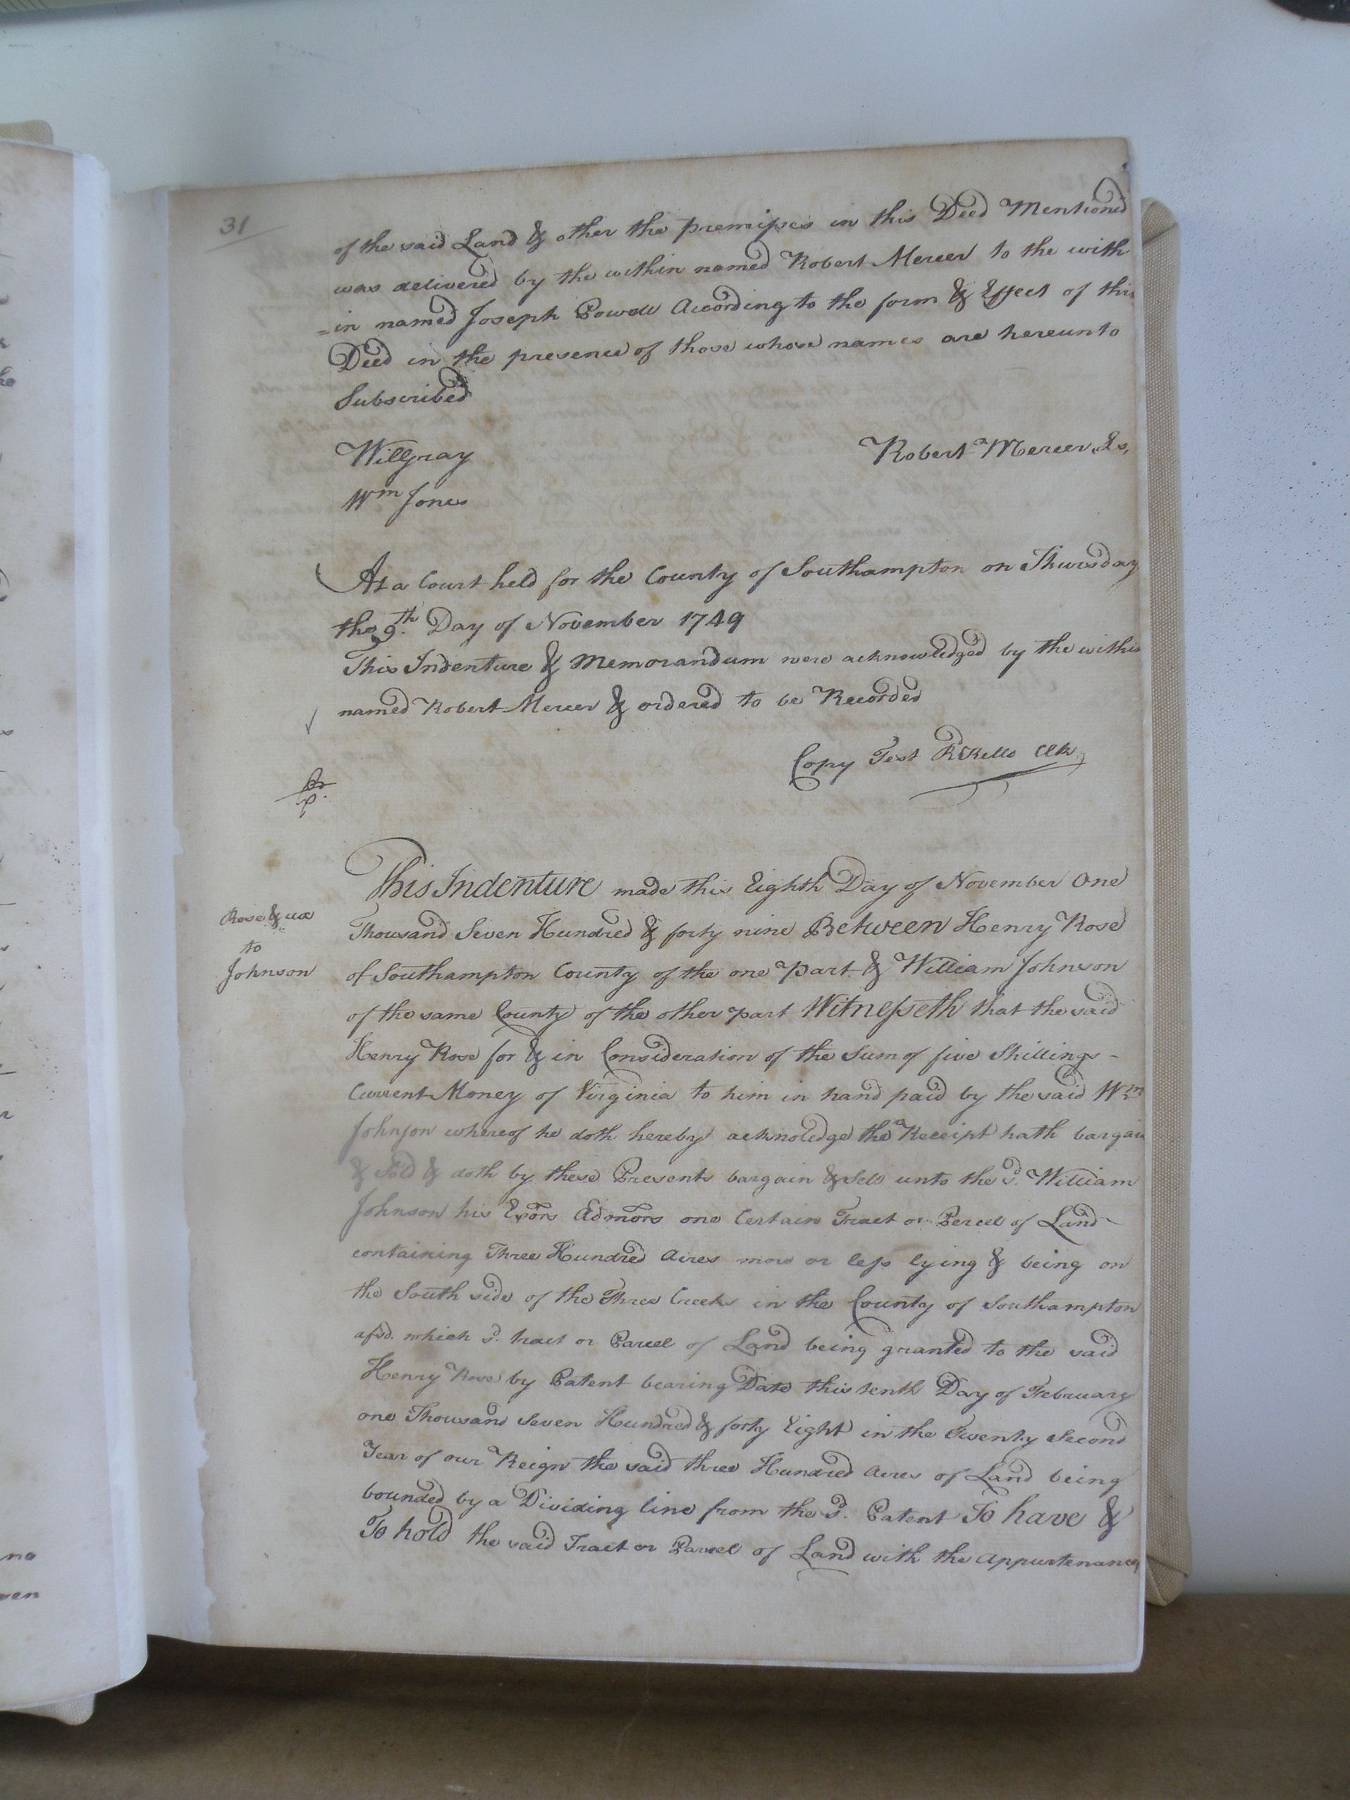 31
of the said Land & other the premisses in this Deed Mentioned
was delivered by the within named Robert Mercer to the with
=in named Joseph Powell Acording to the form & Effect of this
Deed in the presence of those whose names are hereunto
Subscribed
Will Gray
Robert Mercer
Wm Jones
At a Court held for the County of Southampton on Thursday
the 9th. Day of November 1749
This Indenture & Memorandum were acknowledged by the within
named Robert Mercer & ordered to be Recorded
Copy Test R Kello Clk
This Indenture made this Eighth Day of November One
Thousand Seven Hundred & forty nine Between Henry Rose
Rose & ux
to
Johnson
of Southampton County of the one Part & William Johnson
of the same County of the other part Witnesseth that the said
Henry Rose for & in Consideration of the Sum of five Shillings
Current Money of Virginia to him in hand paid by the said Wm
Johnson whereof he doth hereby acknoledge the Receipt hath bargain
& Sold & doth by these Presents bargain & Sell unto the sd. William
Johnson his Exors Admors one Certain Tract or Percel of Land
containing Three Hundred Acres more or less lying & being on
the South side of the Three Creeks in the County of Southampton
afsd. which sd. tract or Parcel of Land being granted to the said
Henry Rose by Patent bearing Date this tenth Day of February
one Thousand Seven Hundred & forty Eight in the Twenty Second
Year of our Reign the said three Hundred Acres of Land being
bounded by a Dividing line from the sd. Patent To have &
To hold the said Tract or Parcel of Land with the Appurtenances